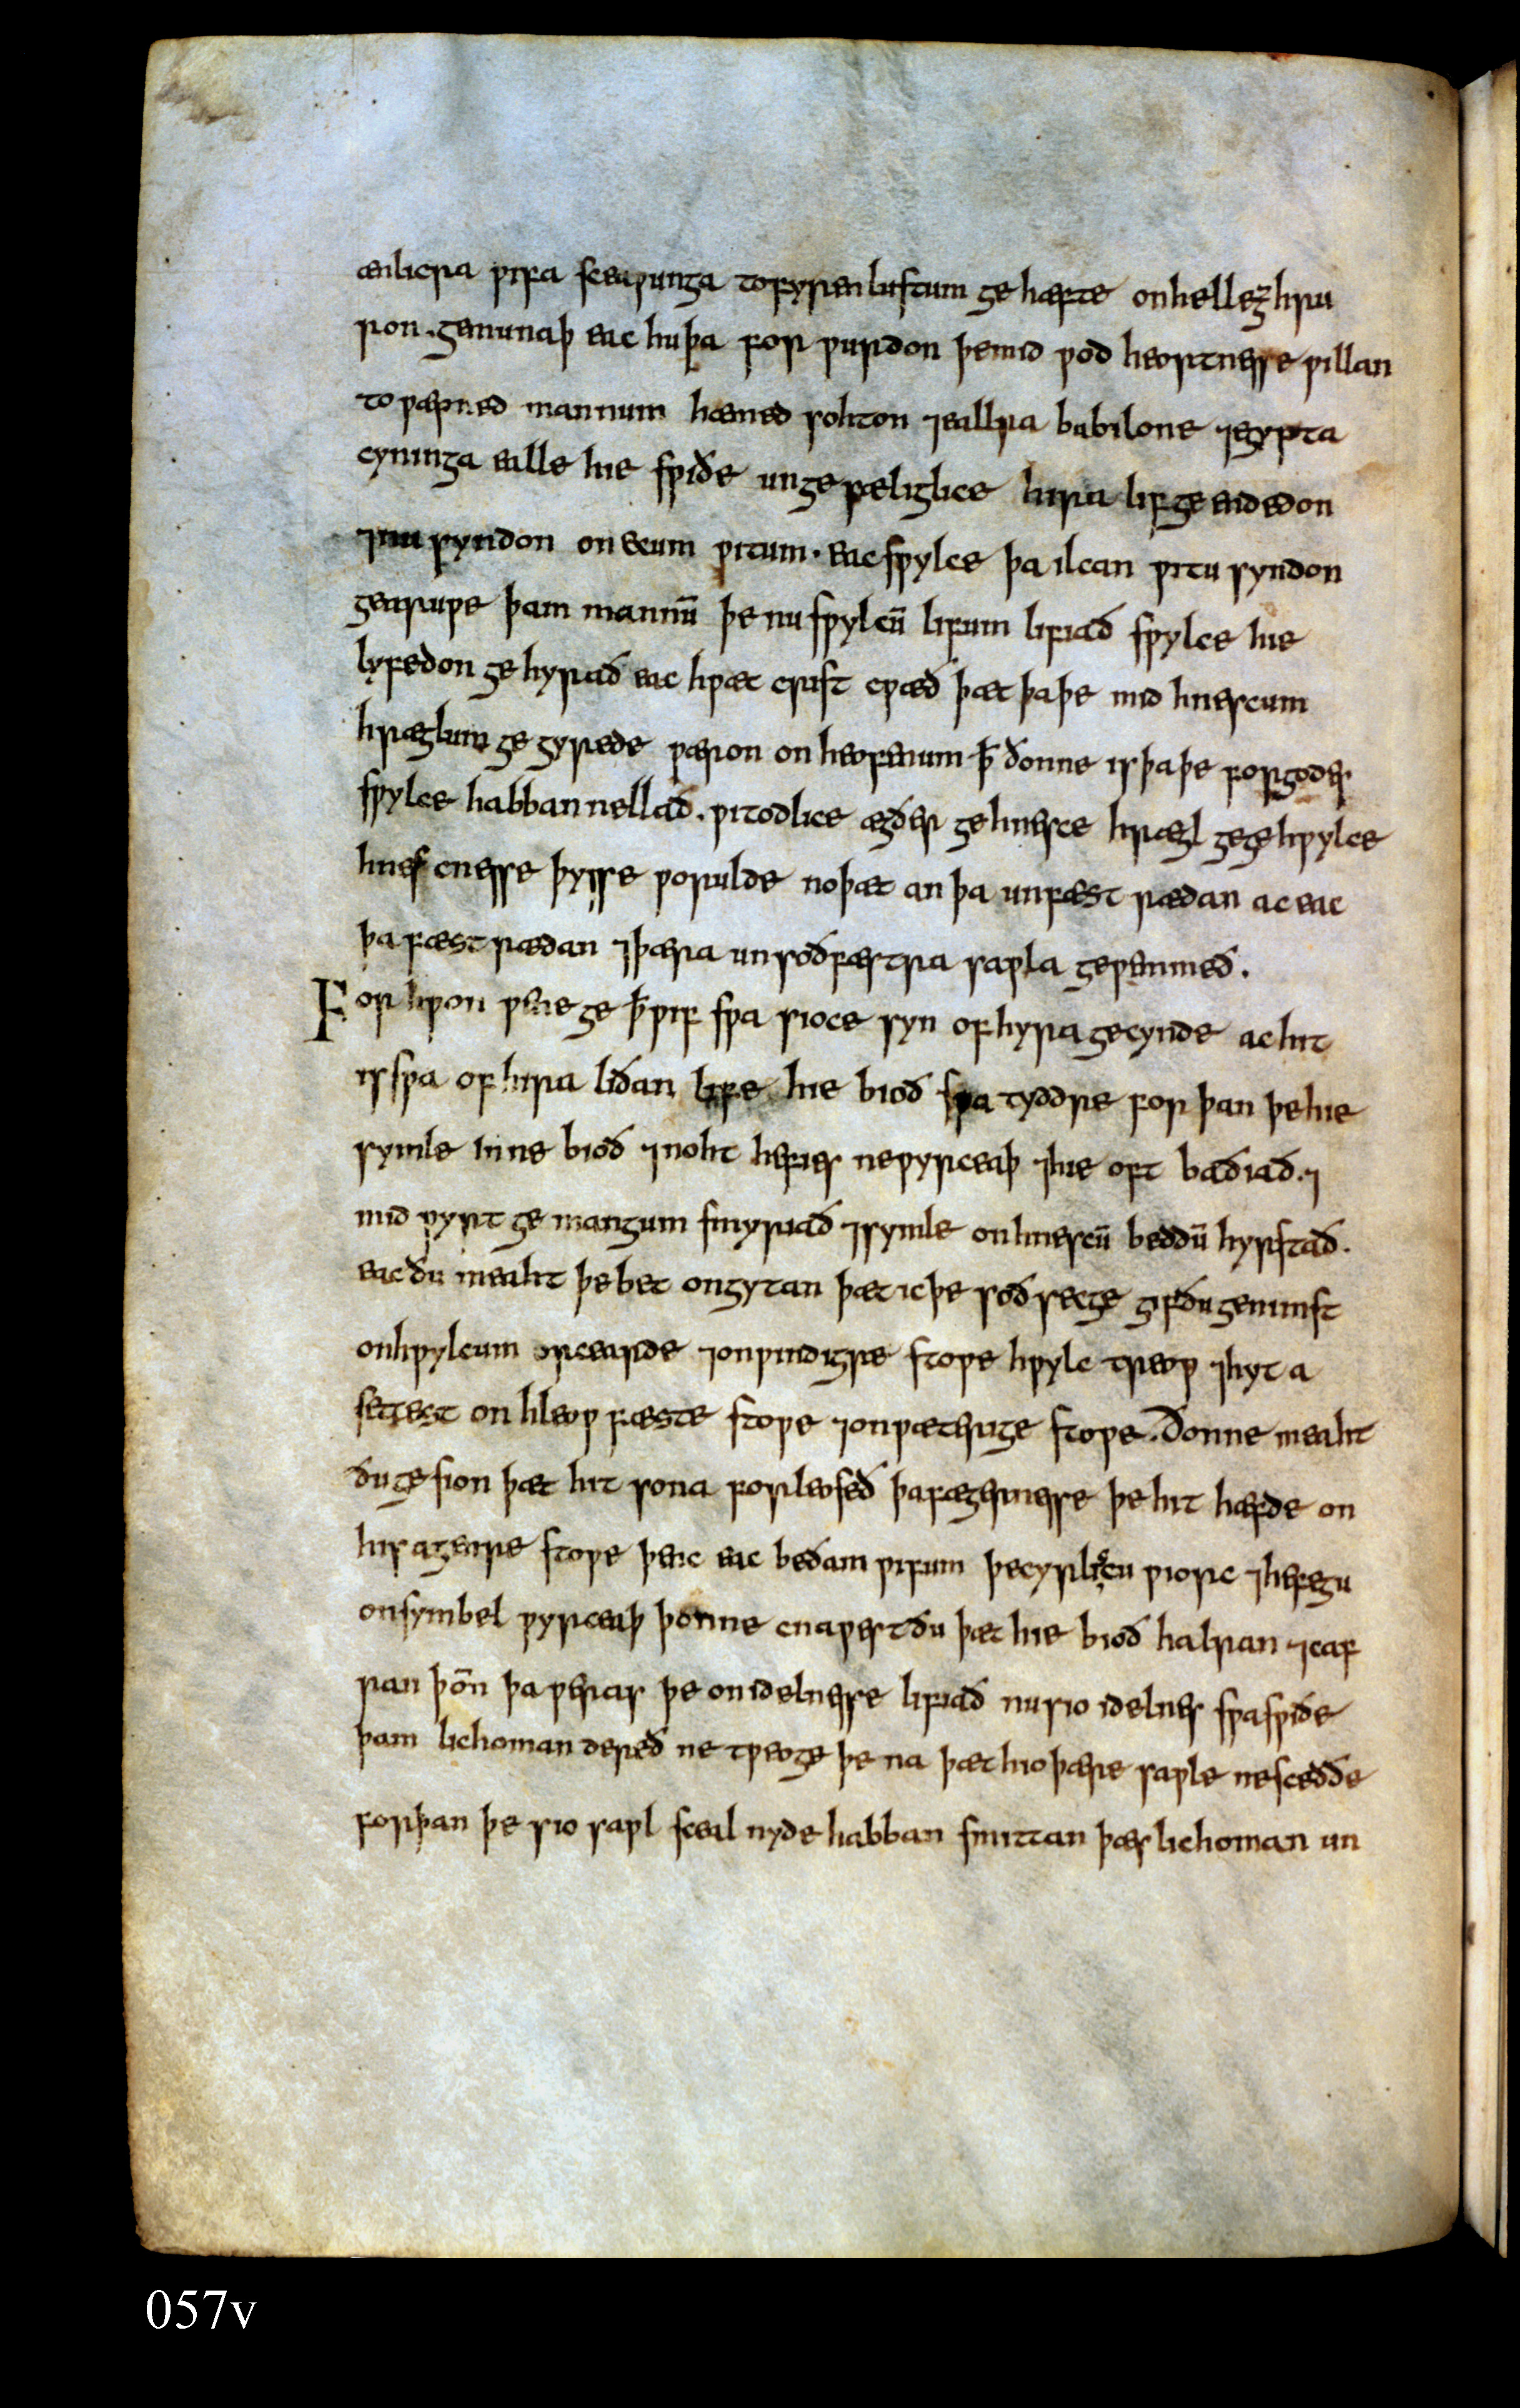 ænlicra ƿifa sceaƿunga to fyrenlustum gehæfte on hellegrhru
ron. gemunaþ eac hu þa forƿurdon þe mid ƿodheortnesse ƿillan
to ƿæpned mannum hæmed sohton ⁊ eallra babilone ⁊ egypta
cyninga ealle hie sƿiðe ungesæliglice hira lif geendedon
⁊ nu syndon on ecum ƿitum. eac sƿylce þa ilcan ƿitu syndon
gearuƿe þam mannū þe nu sƿylcū lifum lifiað sƿylce hie
lyfedon gehyrað eac hƿæt crist cƿæð þæt þa þe mid hnescum
hræglum gegyrede ƿæron on heofenum ꝥ ðonne is þa þe for godes
sƿylce habban nellað. ƿitodlice ægðer ge hnesce hrægl ge gehƿylce
hnescnesse þysse ƿorulde no þæt an þa unfæstrædan ac eac
þa fæstrædan ⁊ þæra unsoðfæstra saƿla geƿemmeð.
For hƿon ƿene ge ꝥ ƿif sƿa sioce syn of hyra gecynde ac hit
is sƿa of hira liðan life hie bioð sƿa tyddre for þan þe hie
symle inne bioð ⁊ noht hefies ne ƿyrceaþ ⁊ hie oft baðiað. ⁊
mid ƿyrtgemangum smyriað ⁊ symle on hnescū beddū hyrstað.
eac ðu meaht þe bet ongytan þæt ic þe soð secge gif ðu genimst
on hƿylcum orcearde ⁊ on ƿindigre stoƿe hƿylc treoƿ ⁊ hyt a
setest on hleoƿfæste stoƿe ⁊ on ƿæterige stoƿe. Ðonne meaht
ðu gesion þæt hit sona forleoseð þa fægernesse þe hit hæfde on
his agenre stoƿe þenc eac be ðam ƿifum þe cyrlicu ƿiorc ⁊ hefegu
on symbel ƿyrceaþ þonne cnaƿest ðu þæt hie bioð halran ⁊ caf
ran þoñ þa ƿeras þe on idelnesse lifiað nu sio idelnes sƿa sƿiðe
þam lichoman dereð ne tƿeoge þe na þæt hio þære saƿle ne sceððe
forþan þe sio saƿl sceal nyde habban smittan þæs lichoman un
057v